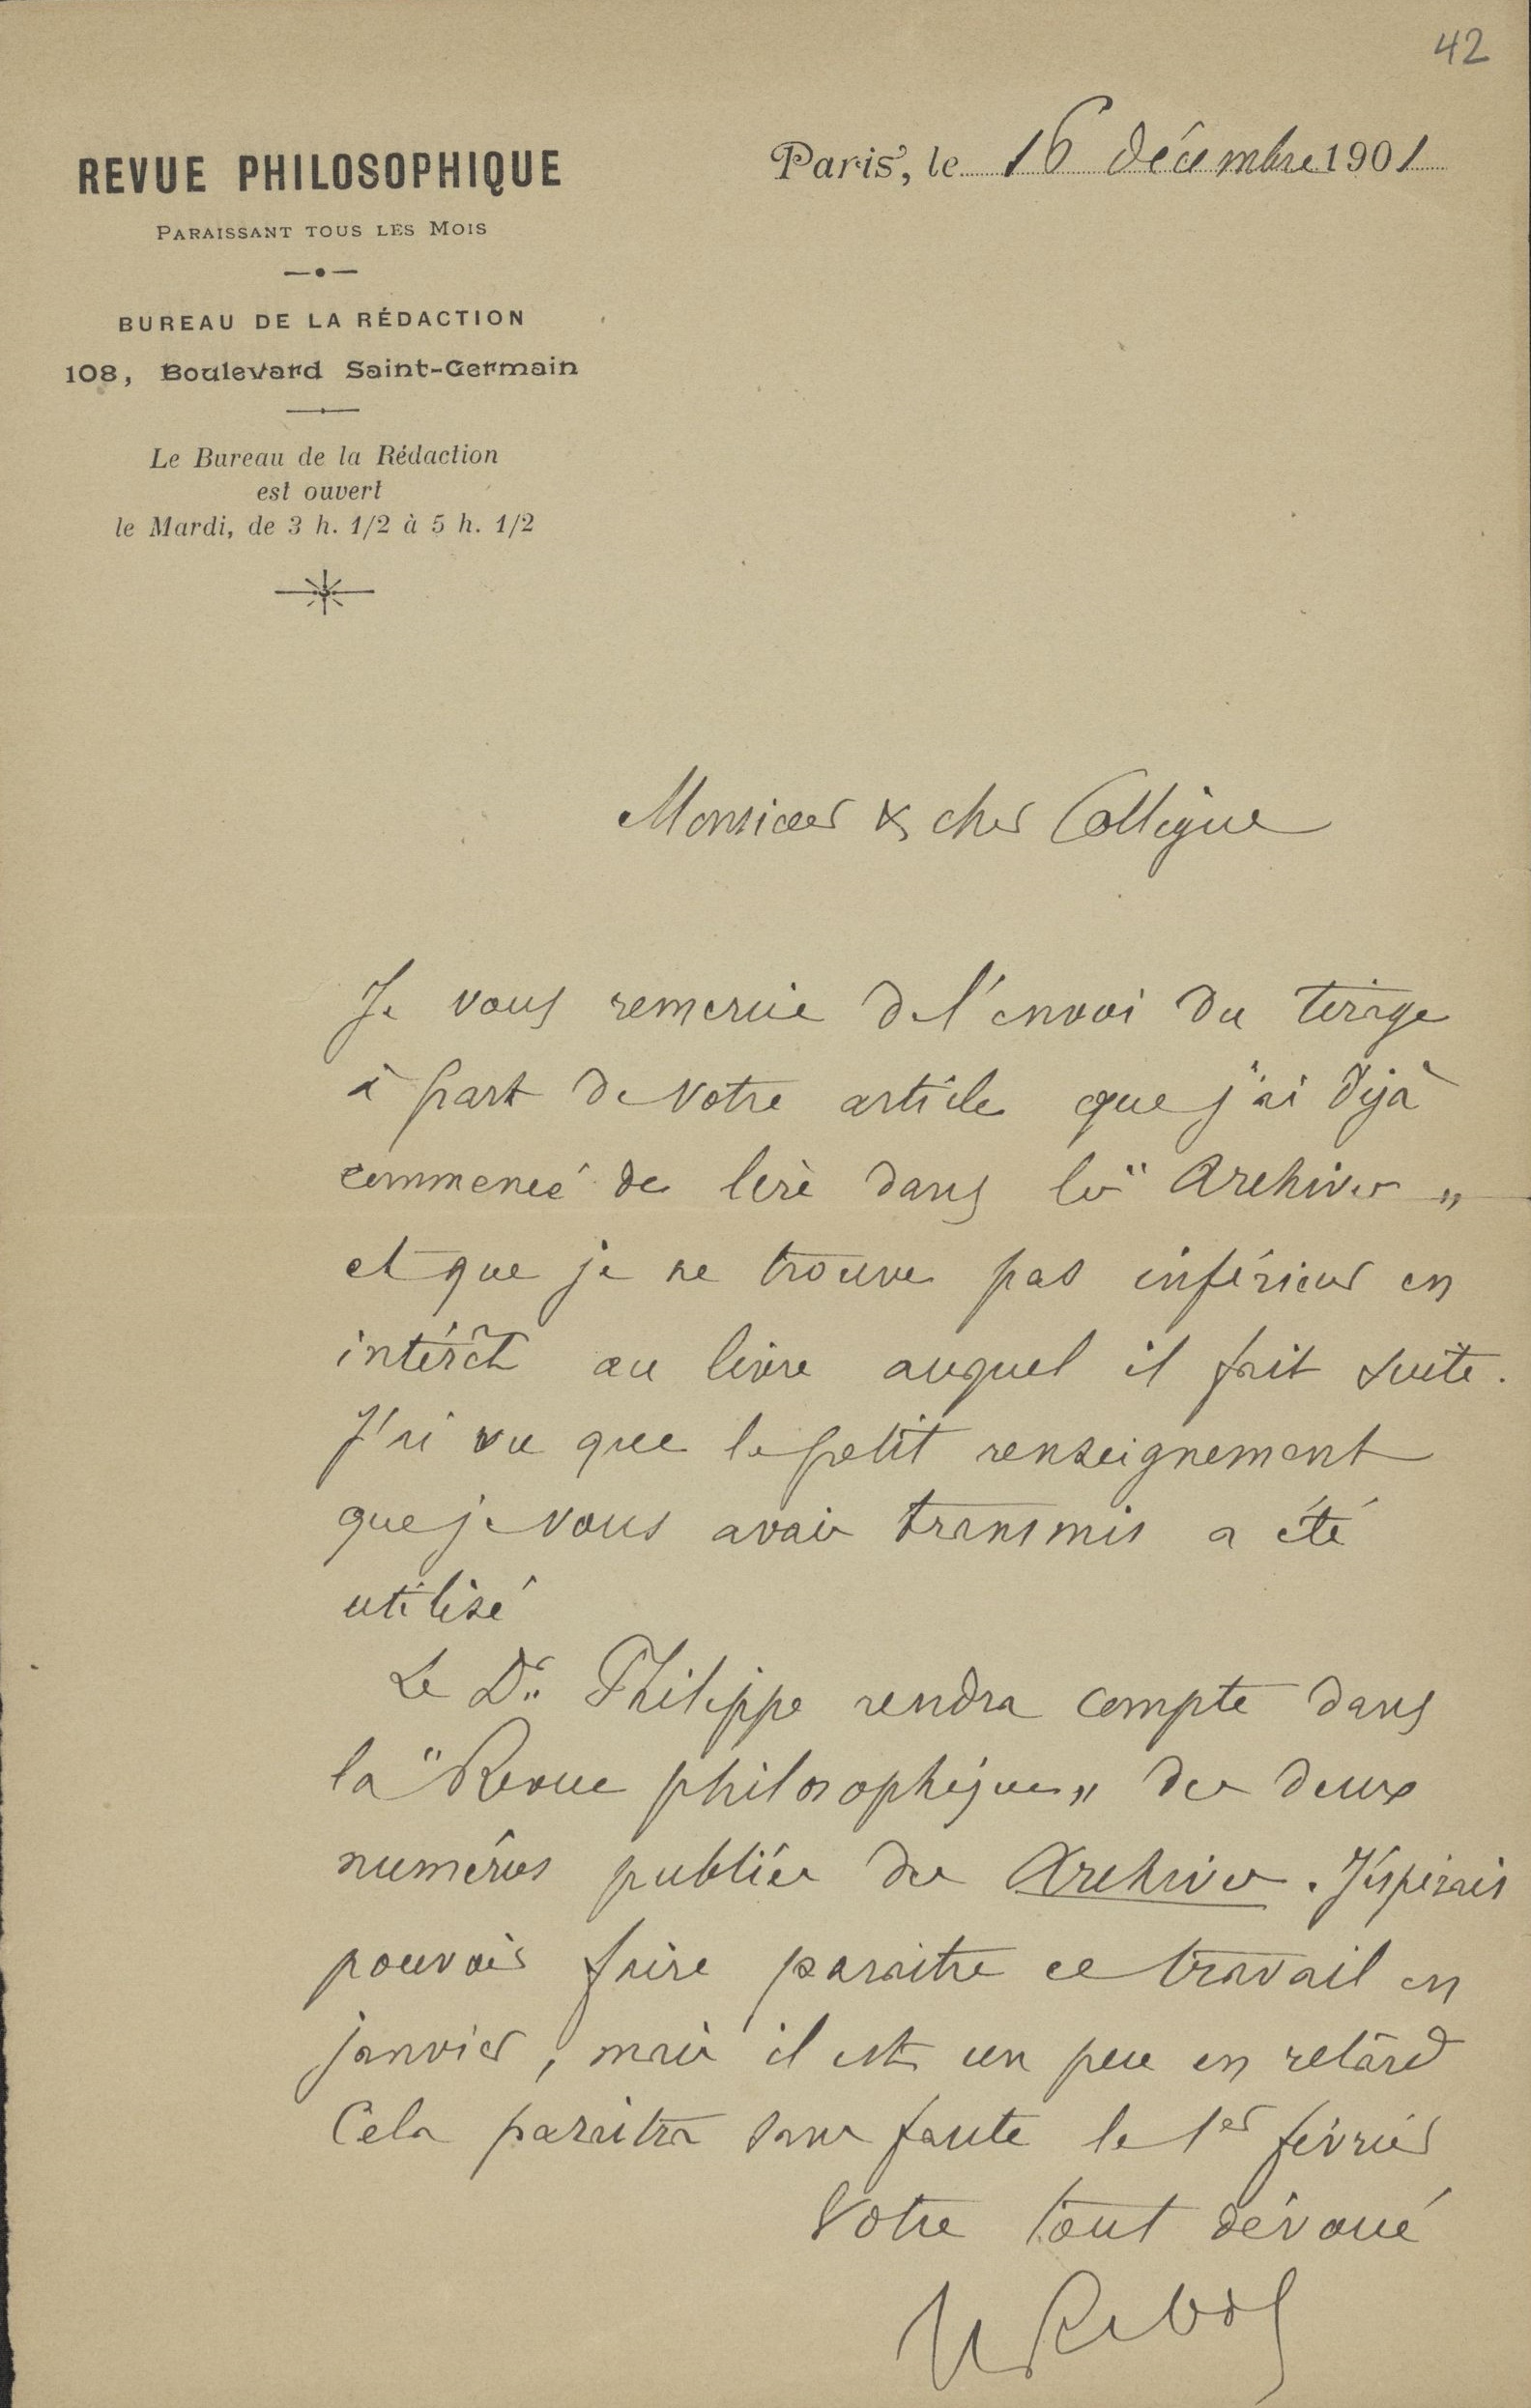 42
REVUE PHILOSOPHIQUE
PARAISSANT TOUS LES MOIS
BUREAU DE LA RÉDACTION
108, Boulevard Saint-Germain
Le Bureau de la Rédaction
est ouvert
le Mardi, de 3 h. 1/2 à 5 h. 1/2
Paris, le 16 décembre 1901
Monsieur & cher Collègue
Je vous remercie de l'envoi du tirage
à part de votre article que j'ai déjà
commencé de lire dans les "Archives"
et que je ne trouve pas inférieur en
intérêt au livre auquel il fait suite.
J'ai vu que le petit renseignement
que je vous avais transmis a été
utilisé
Le Dr. Philippe rendra compte dans
la "Revue philosophique" des deux
numéros publiés des Archives. J'espérais
pouvoir faire paraitre ce travail en
janvier, mais il est un peu en retard
Cela paraitra sans faute le 1er février
Votre tout dévoué
Th Ribot